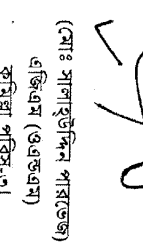 (মোঃ সালাহউদ্দিন পারভেজ)
এজিএম (ওএন্ডএম)
কুমিল্লা পবিস